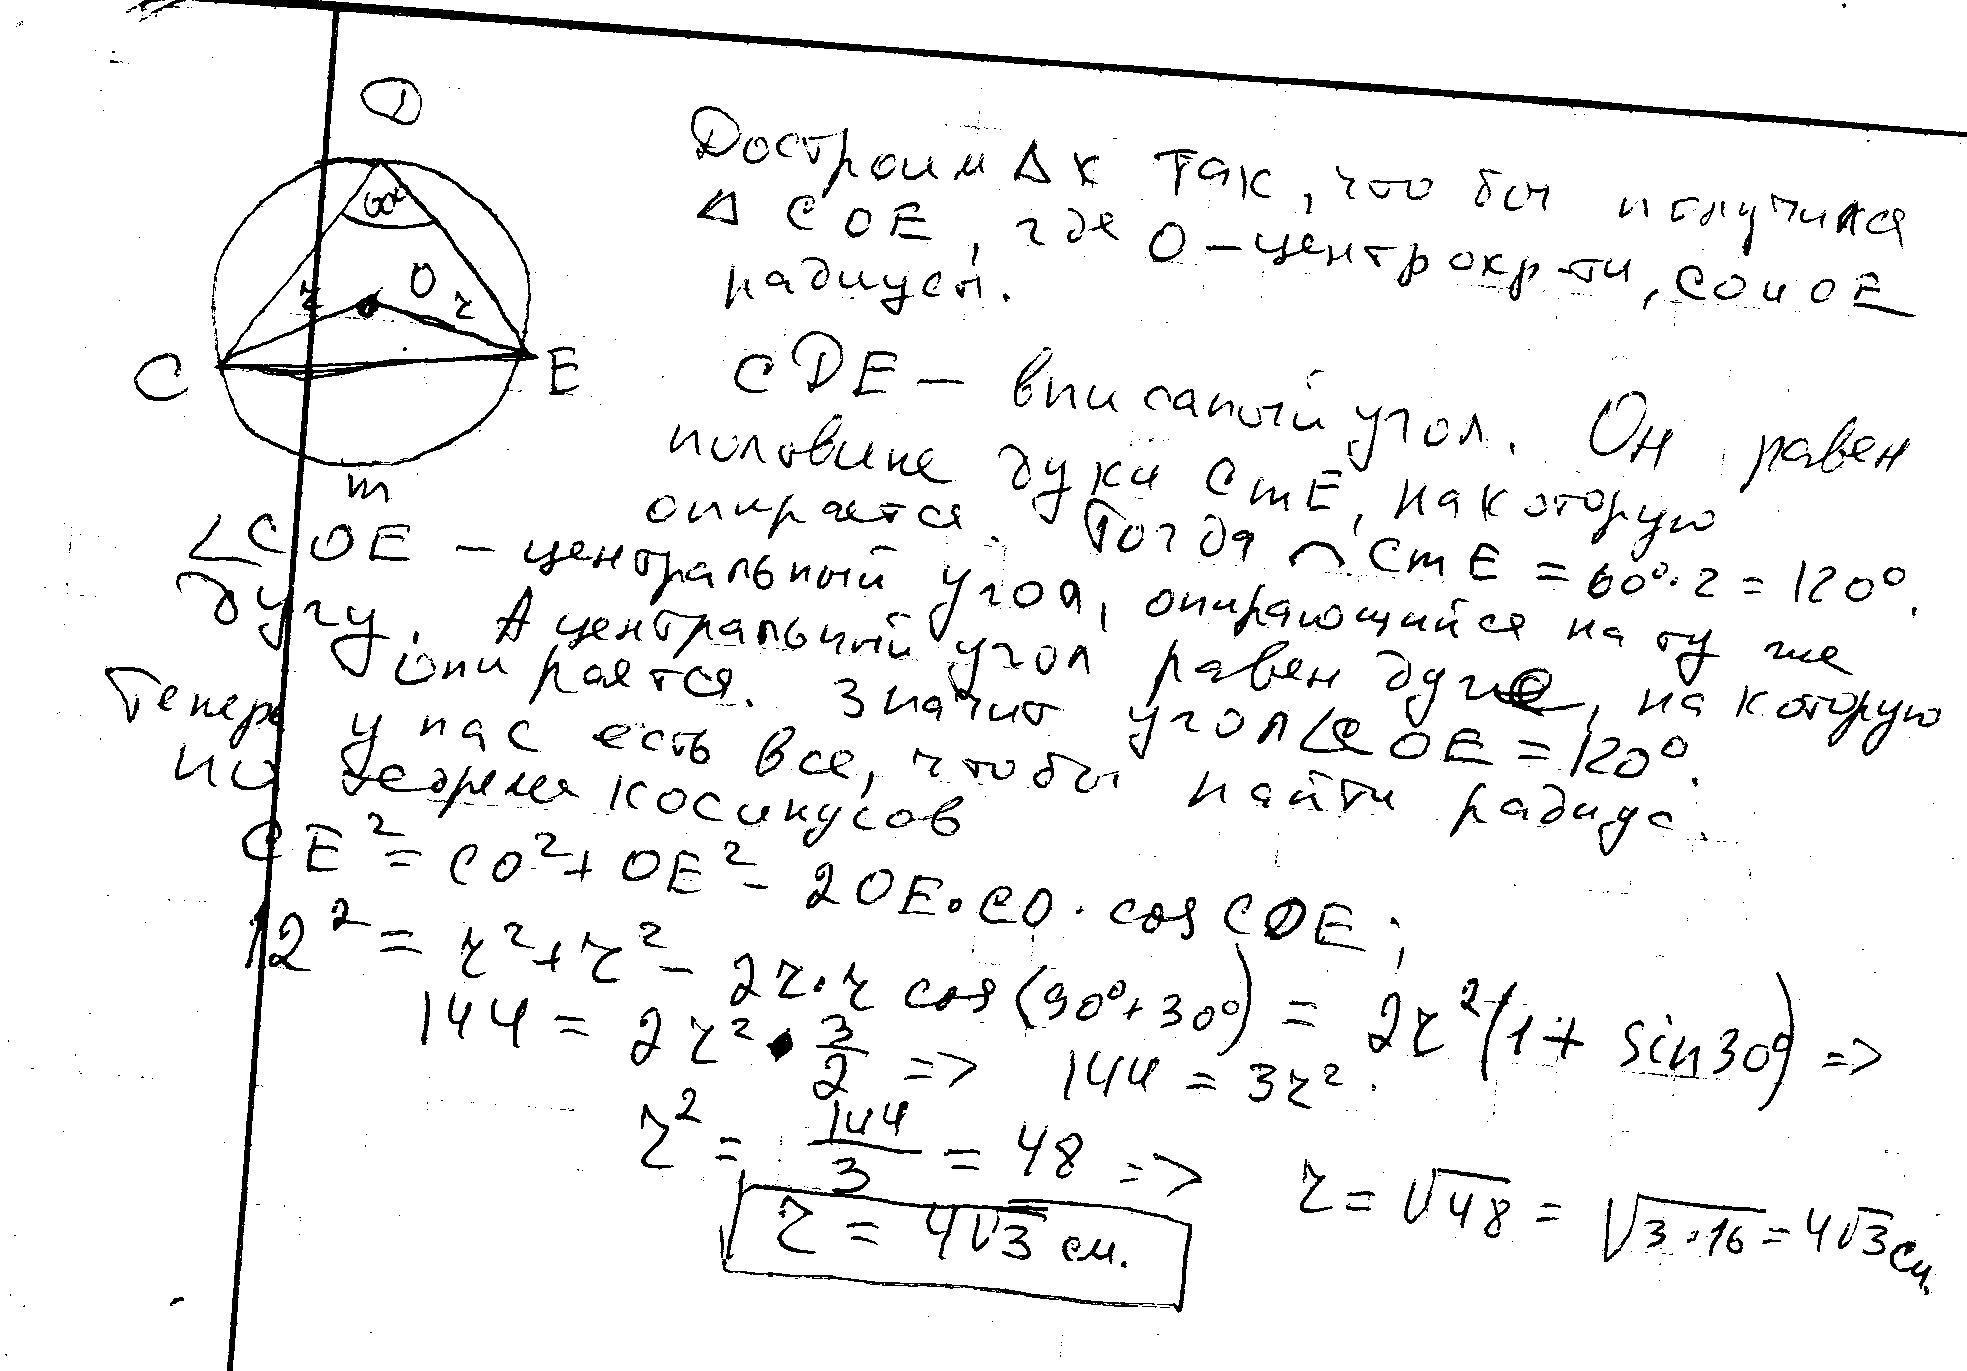 D
60°
O
r
r
C
E
m
Достроим Δк так, что бы получился
Δ COE, где O – центр окр-ти, CO и OE
радиусы.
CDE – вписаный угол. Он равен
половине дуки CmE, на которую
опирается. Тогда ◠ CmE = 60°·2 = 120°.
∠COE – центральный угол, опирающийся на ту же
дугу. А центральный угол равен дуге, на которую
опирается. Значит угол ∠COE = 120°.
Теперь у нас есть все, чтобы найти радиус.
По теореме косинусов
CE² = CO² + OE² - 2OE·CO·cos COE;
12² = r² + r² - 2r·r cos(90°+30°) = 2r²(1+ sin30°) =>
144 = 2r² · 3/2 => 144 = 3r².
r² = 144/3 = 48 => r = √48 = √3·16 = 4√3 см.
r = 4√3 см.